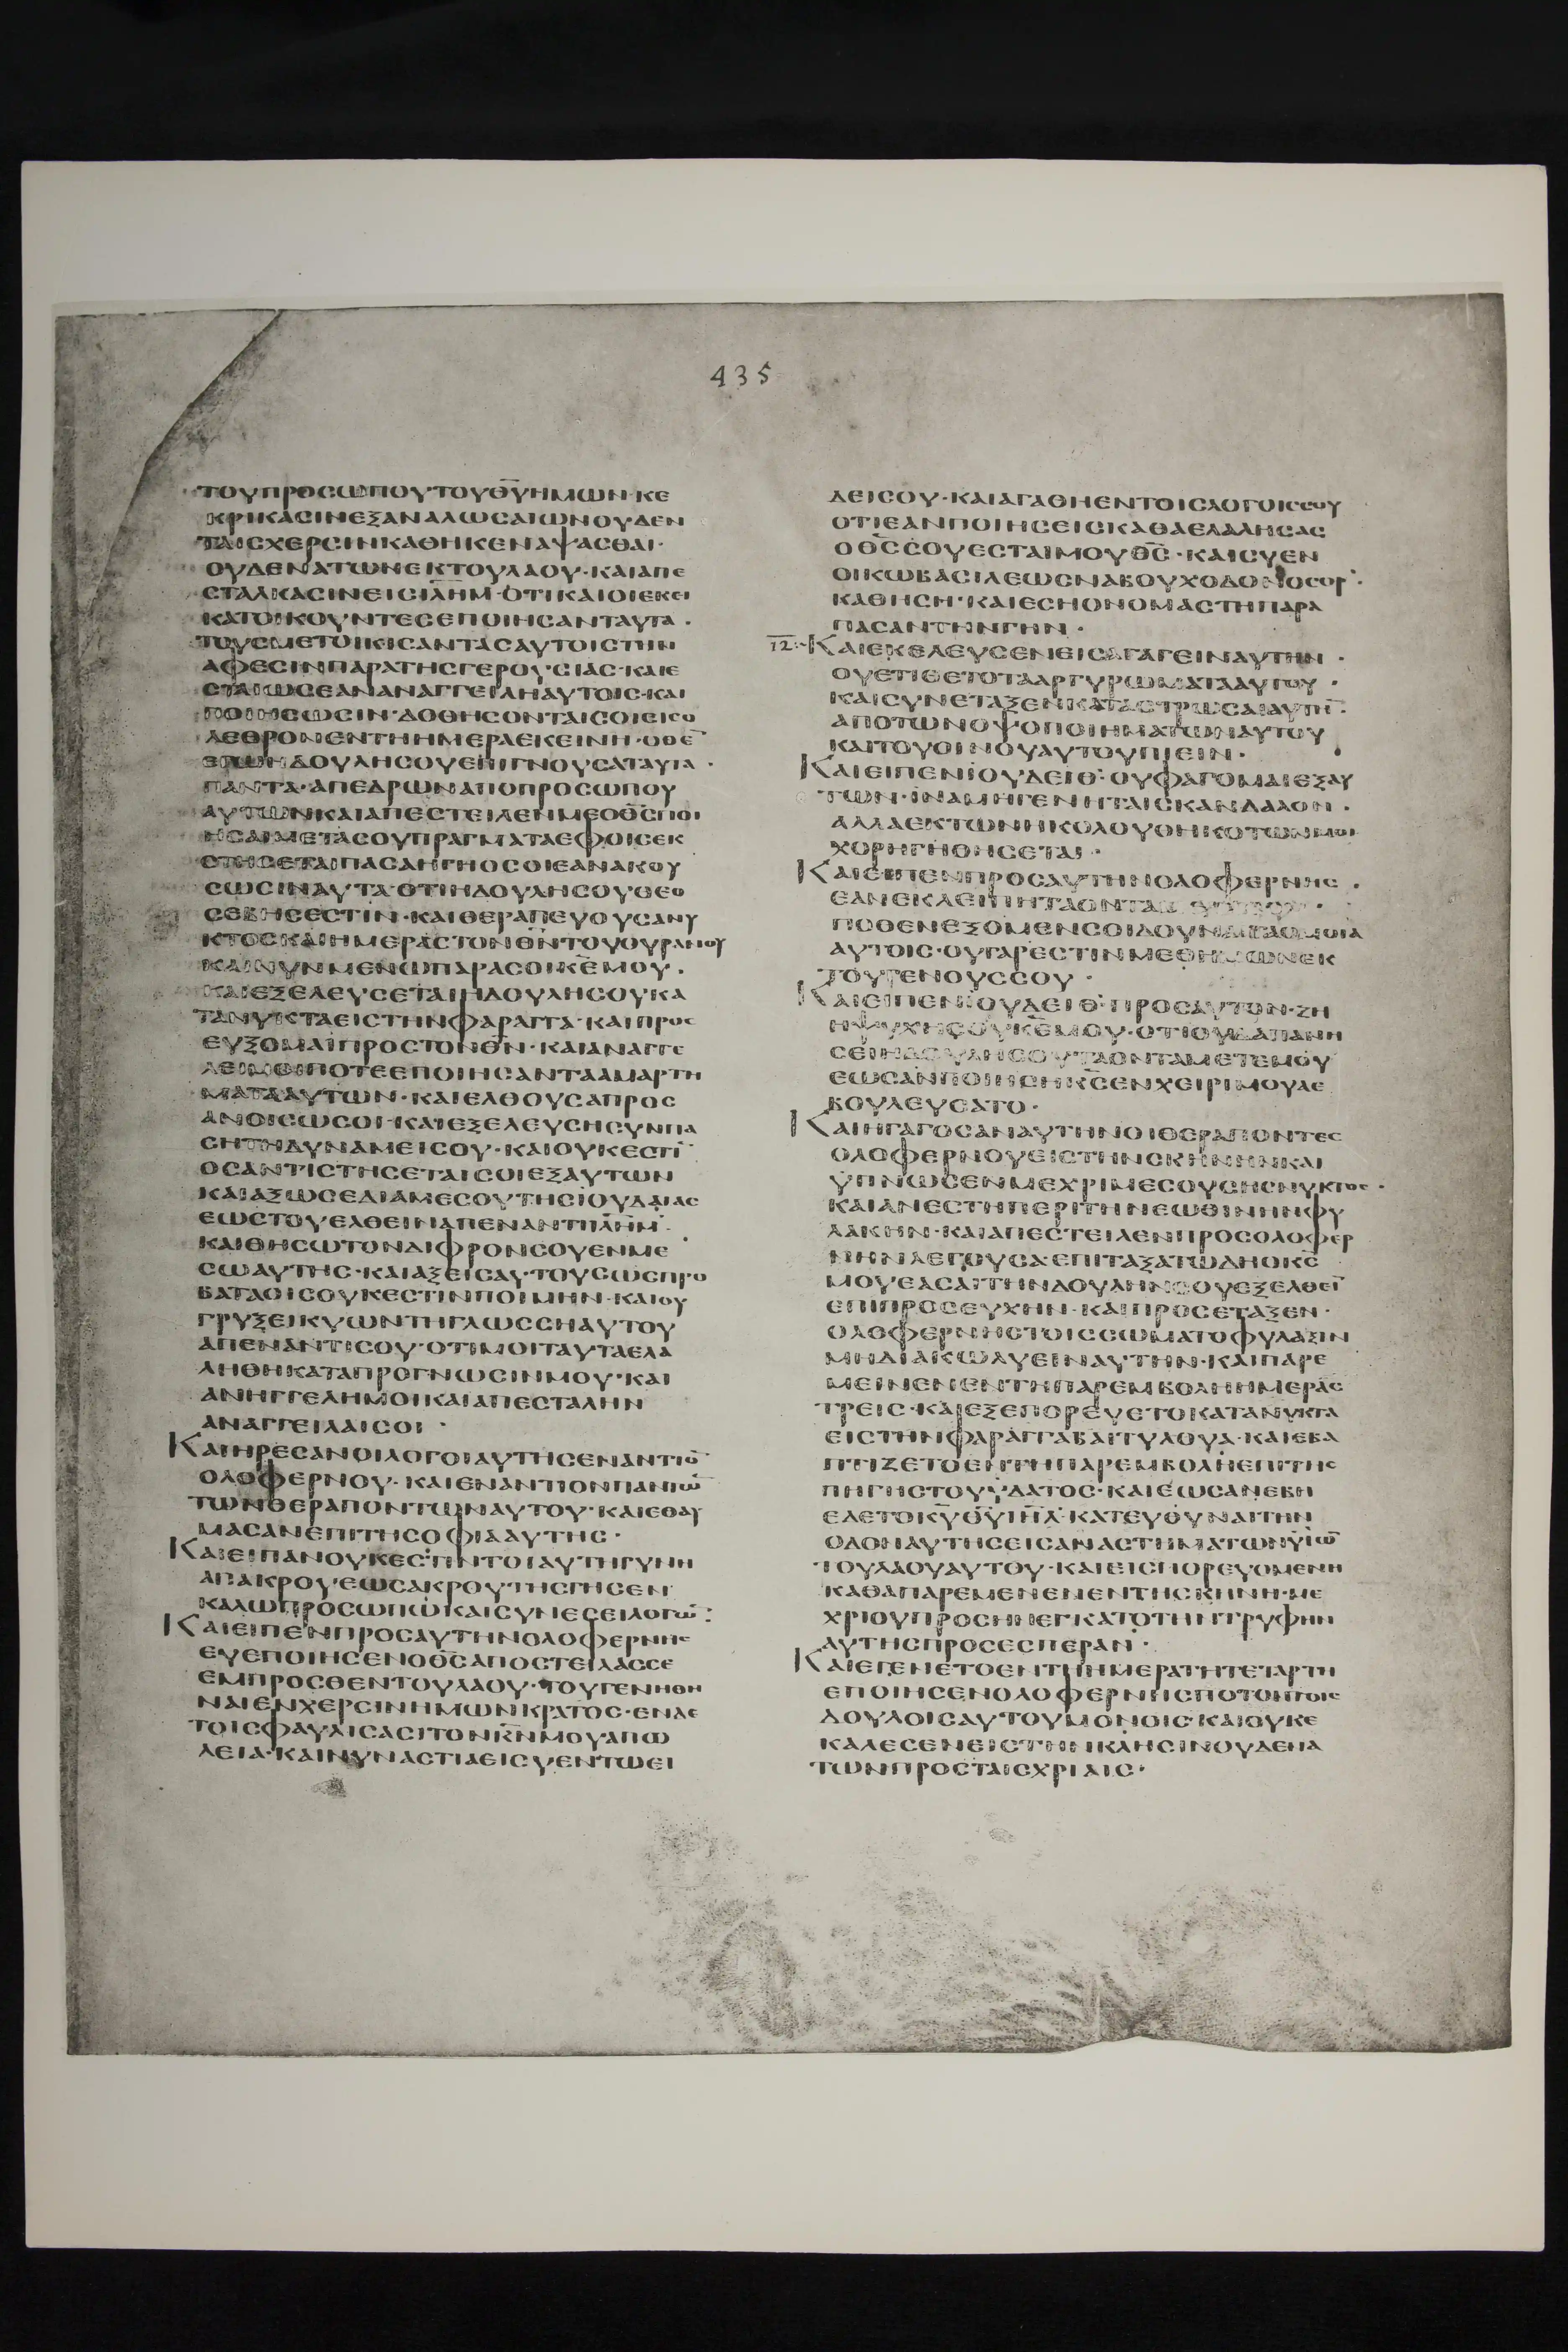 435
ΤΟΥΠΡΟΣΩΠΟΥΤΟΥΘ̅Υ̅ΗΜΩΝ·ΚΕ
ΚΡΙΚΑCΙΝΕΞΑΝΑΛΩCΑΙΩΝΟΥΔΕΝ
ΤΑΙCΧΕΡCΙΝΚΑΘΗΚΕΝΑΨΑCΘΑΙ·
ΟΥΔΕΝΑΤΩΝΕΚΤΟΥΛΑΟΥ·ΚΑΙΑΠΕ
CΤΑΛΚΑCΙΝΕΙCΙ̅Λ̅Η̅Μ̅·ΟΤΙΚΑΙΟΙΕΚΕΙ
ΚΑΤΟΙΚΟΥΝΤΕCΕΠΟΙΗCΑΝΤΑΥΤΑ·
ΤΟΥCΜΕΤΟΙΚΙCΑΝΤΑCΑΥΤΟΙCΤΗΝ
ΑΦΕCΙΝΠΑΡΑΤΗCΓΕΡΟΥCΙΑC·ΚΑΙΕ
CΤΑΙΩCΕΑΝΑΝΑΓΓΕΙΛΗΑΥΤΟΙC·ΚΑΙ
ΠΟΙΗCΩCΙΝ·ΔΟΘΗCΟΝΤΑΙCΟΙΕΙCΟ
ΛΕΘΡΟΝΕΝΤΗΗΜΕΡΑΕΚΕΙΝΗ·ΟΘΕ̅
ΕΓΩΗΔΟΥΛΗCΟΥΕΠΙΓΝΟΥCΑΤΑΥΤΑ·
ΠΑΝΤΑ·ΑΠΕΔΡΩΝΑΠΟΠΡΟCΩΠΟΥ
ΑΥΤΩΝΚΑΙΑΠΕCΤΕΙΛΕΝΜΕΟΘ̅C̅ΠΟΙ
ΗCΑΙΜΕΤΑCΟΥΠΡΑΓΜΑΤΑΕΦΟΙCΕΚ
CΤΗCΕΤΑΙΠΑCΑΗΓΗΟCΟΙΕΑΝΑΚΟΥ
CΩCΙΝΑΥΤΑ·ΟΤΙΗΔΟΥΛΗCΟΥΘΕΟ
CΕΒΗCΕCΤΙΝ·ΚΑΙΘΕΡΑΠΕΥΟΥCΑΝΥ
ΚΤΟCΚΑΙΗΜΕΡΑCΤΟΝΘ̅Ν̅ΤΟΥΟΥΡΑΝΟΥ
ΚΑΙΝΥΝΜΕΝΩΠΑΡΑCΟΙΚ̅Ε̅ΜΟΥ·
ΚΑΙΕΞΕΛΕΥCΕΤΑΙΗΔΟΥΛΗCΟΥΚΑ
ΤΑΝΥΚΤΑΕΙCΤΗΝΦΑΡΑΓΓΑ·ΚΑΙΠΡΟC
ΕΥΞΟΜΑΙΠΡΟCΤΟΝΘ̅Ν̅·ΚΑΙΑΝΑΓΓΕ
ΛΕΙΜΟΙΠΟΤΕΕΠΟΙΗCΑΝΤΑΑΜΑΡΤΗ
ΜΑΤΑΑΥΤΩΝ·ΚΑΙΕΛΘΟΥCΑΠΡΟC
ΑΝΟΙCΩCΟΙ·ΚΑΙΕΞΕΛΕΥCΗCΥΝΠΑ
CΗΤΗΔΥΝΑΜΕΙCΟΥ·ΚΑΙΟΥΚΕCΤΙ̅
ΟCΑΝΤΙCΤΗCΕΤΑΙCΟΙΕΞΑΥΤΩΝ
ΚΑΙΑΞΩCΕΔΙΑΜΕCΟΥΤΗCΙΟΥΔΑΙΑC
ΕΩCΤΟΥΕΛΘΕΙΝΑΠΕΝΑΝΤΙΙ̅Λ̅Η̅Μ̅·
ΚΑΙΘΗCΩΤΟΝΔΙΦΡΟΝCΟΥΕΝΜΕ
CΩΑΥΤΗC·ΚΑΙΑΞΕΙCΑΥΤΟΥCΩCΠΡΟ
ΒΑΤΑΟΙCΟΥΚΕCΤΙΝΠΟΙΜΗΝ·ΚΑΙΟΥ
ΓΡΥΞΕΙΚΥΩΝΤΗΓΛΩCCΗΑΥΤΟΥ
ΑΠΕΝΑΝΤΙCΟΥ·ΟΤΙΜΟΙΤΑΥΤΑΕΛΑ
ΛΗΘΗΚΑΤΑΠΡΟΓΝΩCΙΝΜΟΥ·ΚΑΙ
ΑΝΗΓΓΕΛΗΜΟΙΚΑΙΑΠΕCΤΑΛΗΝ
ΑΝΑΓΓΕΙΛΑΙCΟΙ·
ΚΑΙΗΡΕCΑΝΟΙΛΟΓΟΙΑΥΤΗCΕΝΑΝΤΙΟ̅
ΟΛΟΦΕΡΝΟΥ·ΚΑΙΕΝΑΝΤΙΟΝΠΑΝΤΩ̅
ΤΩΝΘΕΡΑΠΟΝΤΩΝΑΥΤΟΥ·ΚΑΙΕΘΑΥ
ΜΑCΑΝΕΠΙΤΗCΟΦΙΑΑΥΤΗC·
ΚΑΙΕΙΠΑΝΟΥΚΕCΤΙΝΤΟΙΑΥΤΗΓΥΝΗ
ΑΠΑΚΡΟΥΕΩCΑΚΡΟΥΤΗCΓΗCΕΝ
ΚΑΛΩΠΡΟCΩΠΩΚΑΙCΥΝΕCΕΙΛΟΓΩ̅·
ΚΑΙΕΙΠΕΝΠΡΟCΑΥΤΗΝΟΛΟΦΕΡΝΗC
ΕΥΕΠΟΙΗCΕΝΟΘ̅C̅ΑΠΟCΤΕΙΛΑCCΕ
ΕΜΠΡΟCΘΕΝΤΟΥΛΑΟΥ·ΤΟΥΓΕΝΗΘΗ
ΝΑΙΕΝΧΕΡCΙΝΗΜΩΝΚΡΑΤΟC·ΕΝΔΕ
ΤΟΙCΦΑΥΛΙCΑCΙΤΟΝΚ̅Ν̅ΜΟΥΑΠΩ
ΛΕΙΑ·ΚΑΙΝΥΝΑCΤΙΑΕΙCΥΕΝΤΩΕΙ
ΔΕΙCΟΥ·ΚΑΙΑΓΑΘΗΕΝΤΟΙCΛΟΓΟΙCCΟΥ
ΟΤΙΕΑΝΠΟΙΗCΕΙCΚΑΘΑΕΛΑΛΗCΑC
ΟΘ̅C̅CΟΥΕCΤΑΙΜΟΥΘ̅C̅·ΚΑΙCΥΕΝ
ΟΙΚΩΒΑCΙΛΕΩCΝΑΒΟΥΧΟΔΟΝΟCΟΡ·
ΚΑΘΗCΗ·ΚΑΙΕCΗΟΝΟΜΑCΤΗΠΑΡΑ
ΠΑCΑΝΤΗΝΓΗΝ·
12. ΚΑΙΕΚΕΛΕΥCΕΝΕΙCΑΓΑΓΕΙΝΑΥΤΗΝ·
ΟΥΕΤΙΘΕΤΟΤΑΑΡΓΥΡΩΜΑΤΑΑΥΤΟΥ·
ΚΑΙCΥΝΕΤΑΞΕΝΚΑΤΑCΤΡΩCΑΙΑΥΤΗ̅·
ΑΠΟΤΩΝΟΨΟΠΟΙΗΜΑΤΩΝΑΥΤΟΥ
ΚΑΙΤΟΥΟΙΝΟΥΑΥΤΟΥΠΙΕΙΝ·
ΚΑΙΕΙΠΕΝΙΟΥΔΕΙΘ·ΟΥΦΑΓΟΜΑΙΕΞΑΥ
ΤΩΝ·ΙΝΑΜΗΓΕΝΗΤΑΙCΚΑΝΔΑΛΟΝ·
ΑΛΛΑΕΚΤΩΝΗΚΟΛΟΥΘΗΚΟΤΩΝΜΟΙ
ΧΟΡΗΓΗΘΗCΕΤΑΙ·
ΚΑΙΕΙΠΕΝΠΡΟCΑΥΤΗΝΟΛΟΦΕΡΝΗC·
ΕΑΝΕΚΛΕΙΠΗΤΑΟΝΤΑ
ΠΟΘΕΝΕΞΟΜΕΝCΟΙΔΟΥΝΑΙΤΑΟΜΟΙΑ
ΑΥΤΟΙC·ΟΥΓΑΡΕCΤΙΝΜΕΘΗΜΩΝΕΚ
ΤΟΥΓΕΝΟΥCCΟΥ·
ΚΑΙΕΙΠΕΝΙΟΥΔΕΙΘ·ΠΡΟCΑΥΤΟΝ·ΖΗ
ΗΨΥΧΗCΟΥΚ̅Ε̅ΜΟΥ·ΟΤΙΟΥΔΑΠΑΝΗ
CΕΙΗΔΟΥΛΗCΟΥΤΑΟΝΤΑΜΕΤΕΜΟΥ
ΕΩCΑΝΠΟΙΗCΗΚ̅C̅ΕΝΧΕΙΡΙΜΟΥΑΕ
ΒΟΥΛΕΥCΑΤΟ·
ΚΑΙΗΓΑΓΟCΑΝΑΥΤΗΝΟΙΘΕΡΑΠΟΝΤΕC
ΟΛΟΦΕΡΝΟΥΕΙCΤΗΝCΚΗΝΗΝΚΑΙ
ΥΠΝΩCΕΝΜΕΧΡΙΜΕCΟΥCΗCΝΥΚΤΟC·
ΚΑΙΑΝΕCΤΗΠΕΡΙΤΗΝΕΩΘΙΝΗΝΦΥ
ΛΑΚΗΝ·ΚΑΙΑΠΕCΤΕΙΛΕΝΠΡΟCΟΛΟΦΕΡ
ΝΗΝΛΕΓΟΥCΑ·ΕΠΙΤΑΞΑΤΩΔΗΟΚ̅C̅
ΜΟΥΕΑCΑΙΤΗΝΔΟΥΛΗΝCΟΥΕΞΕΛΘΕΙ̅
ΕΠΙΠΡΟCΕΥΧΗΝ·ΚΑΙΠΡΟCΕΤΑΞΕΝ·
ΟΛΟΦΕΡΝΗCΤΟΙCCΩΜΑΤΟΦΥΛΑΞΙΝ
ΜΗΔΙΑΚΩΛΥΕΙΝΑΥΤΗΝ·ΚΑΙΠΑΡΕ
ΜΕΙΝΕΝΕΝΤΗΠΑΡΕΜΒΟΛΗΗΜΕΡΑC
ΤΡΕΙC·ΚΑΙΕΞΕΠΟΡΕΥΕΤΟΚΑΤΑΝΥΚΤΑ
ΕΙCΤΗΝΦΑΡΑΓΓΑΒΑΙΤΥΛΟΥΑ·ΚΑΙΕΒΑ
ΠΤΙΖΕΤΟΕΝΤΗΠΑΡΕΜΒΟΛΗΕΠΙΤΗC
ΠΗΓΗCΤΟΥΥΔΑΤΟC·ΚΑΙΕΩCΑΝΕΒΗ
ΕΔΕΤΟΚ̅Υ̅Θ̅Υ̅Ι̅Η̅Λ̅·ΚΑΤΕΥΘΥΝΑΙΤΗΝ
ΟΔΟΝΑΥΤΗCΕΙCΑΝΑCΤΗΜΑΤΩΝΥΙΩ̅
ΤΟΥΛΑΟΥΑΥΤΟΥ·ΚΑΙΕΙCΠΟΡΕΥΟΜΕΝΗ
ΚΑΘΑΠΑΡΕΜΕΝΕΝΕΝΤΗCΚΗΝΗ·ΜΕ
ΧΡΙΟΥΠΡΟCΗΝΕΓΚΑΤΟΤΗΝΤΡΥΦΗΝ
ΑΥΤΗCΠΡΟCΕCΠΕΡΑΝ·
ΚΑΙΕΓΕΝΕΤΟΕΝΤΗΗΜΕΡΑΤΗΤΕΤΑΡΤΗ
ΕΠΟΙΗCΕΝΟΛΟΦΕΡΝΗCΠΟΤΟΝΤΟΙC
ΔΟΥΛΟΙCΑΥΤΟΥΜΟΝΟΙC·ΚΑΙΟΥΚΕ
ΚΑΛΕCΕΝΕΙCΤΗΝΚΛΗCΙΝΟΥΔΕΝΑ
ΤΩΝΠΡΟCΤΑΙCΧΡΙΑΙC·